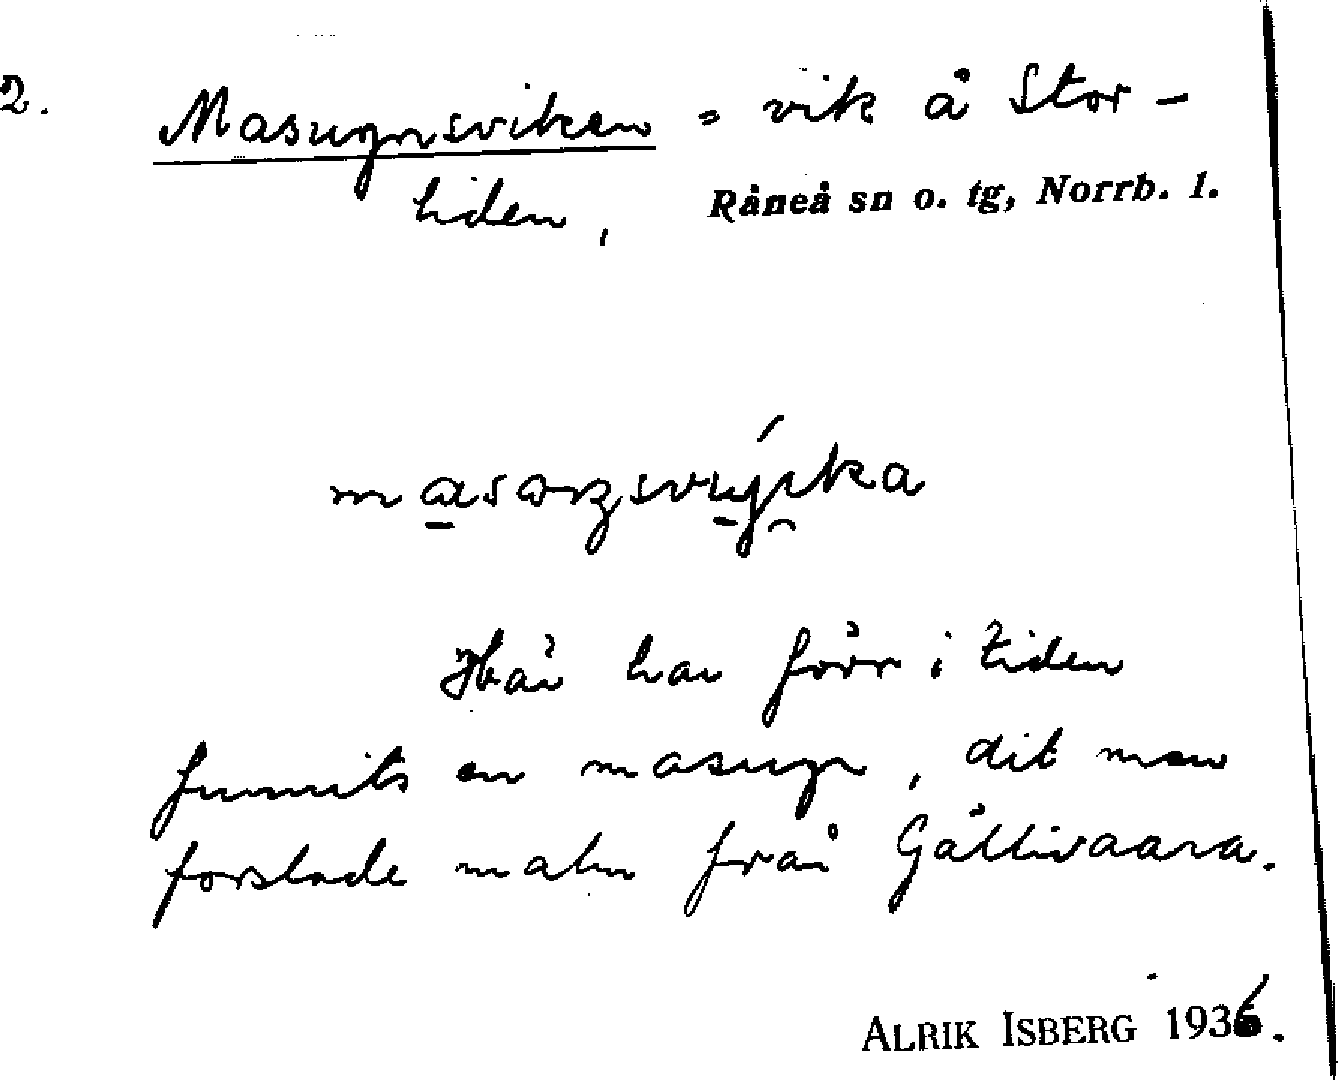 2. Masugnsviken = vik å Stor-
liden, Råneå sn o. tg, Norrb. l.
Här har förr i tiden
funnits en masugn, dit man
forslade malm från Gällivaara.
ALRIK ISBERG 1936.